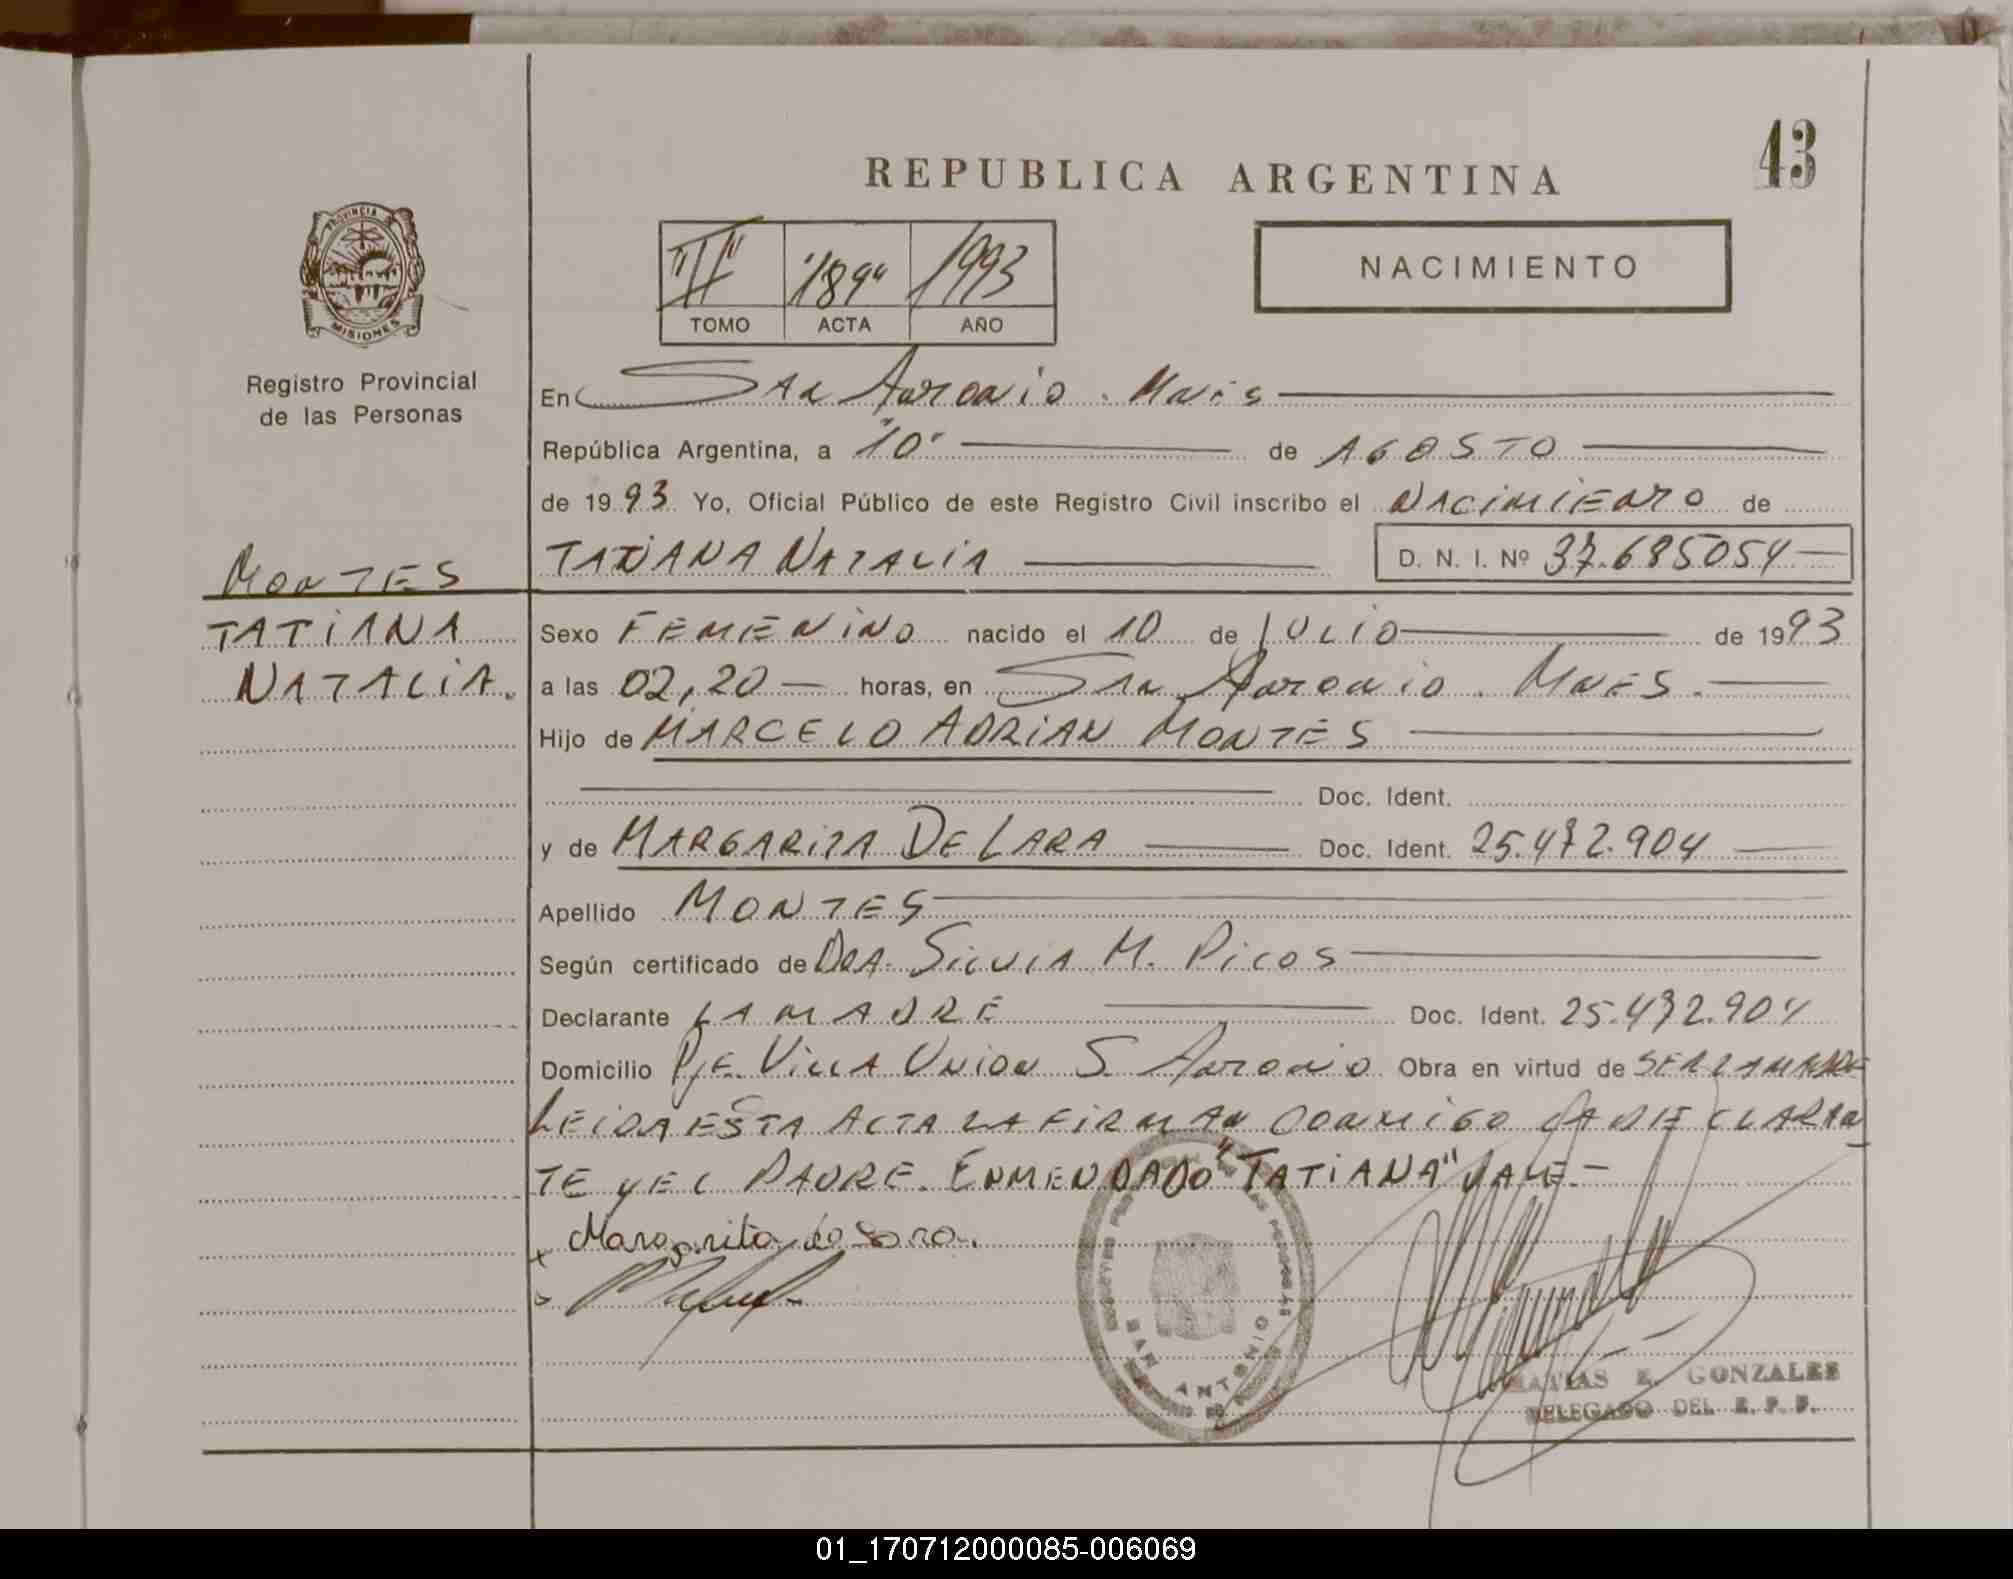 43
REPUBLICA ARGENTINA
PROVINCIA
MISIONES
Registro Provincial
de las Personas
"II" "189" 1993
TOMO ACTA AÑO
NACIMIENTO
En San Antonio. Mnes
República Argentina, a "10" de AGOSTO
de 1993 Yo, Oficial Público de este Registro Civil inscribo el NACIMIENTO de
TATIANA NATALIA D. N. I. Nº 37.685054
MONTES
TATIANA
NATALIA.
Sexo FEMENINO nacido el 10 de JULIO de 1993
a las 02,20 horas, en San Antonio. MNES.
Hijo de MARCELO ADRIAN MONTES
Doc. Ident.
y de MARGARITA DE LARA Doc. Ident. 25.472.904
Apellido MONTES
Según certificado de DRA. SILVIA M. PICOS
Declarante LA MADRE Doc. Ident. 25.472.904
Domicilio Pje. VILLA UNION S. Antonio Obra en virtud de SER LA MADRE
LEIDA ESTA ACTA LA FIRMAN CONMIGO LA DECLARAN
TE Y EL PADRE. ENMENDADO "TATIANA" VALE.-
x Margarita de Lara.
SAN ANTONIO
MATIAS E. GONZALES
DELEGADO DEL R. P. P.
01_170712000085-006069